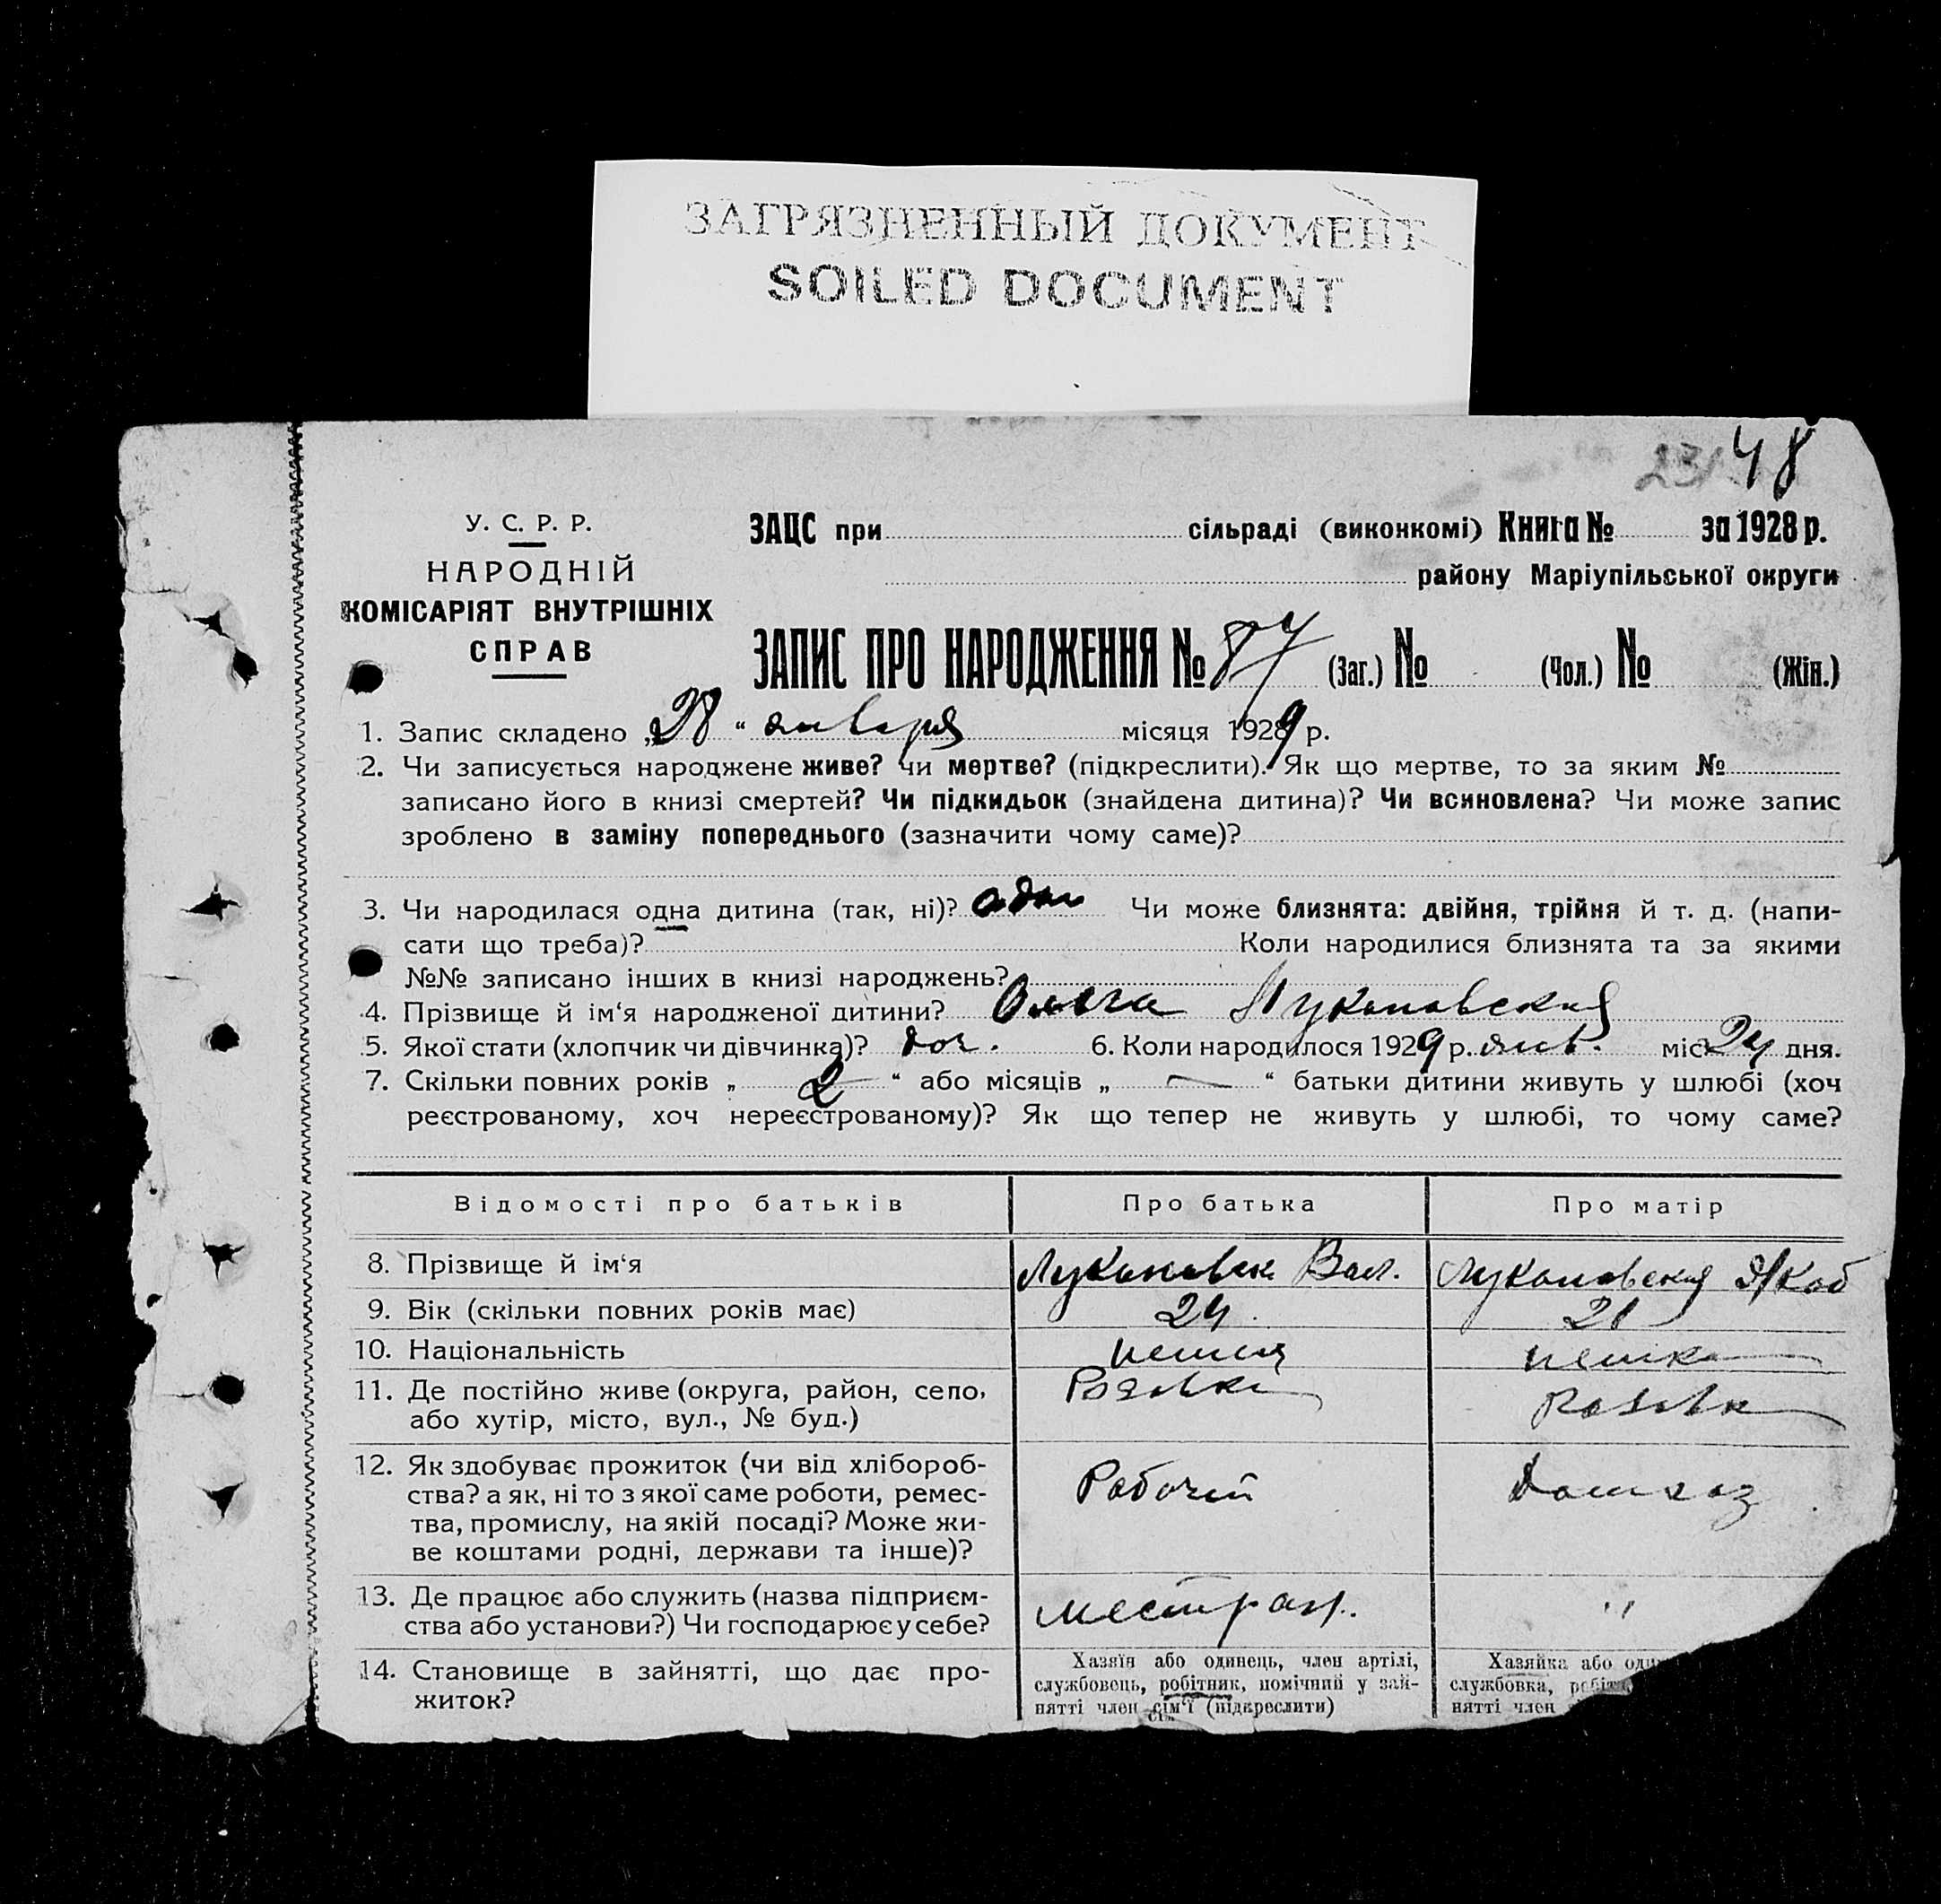 ЗАГРЯЗНЕННЫЙ ДОКУМЕНТ
SOILED DOCUMENT
231 48
У. С. Р. Р.
НАРОДНІЙ
КОМІСАРІЯТ ВНУТРІШНІХ
СПРАВ
ЗАЦС при сільраді (виконкомі) Книга № за 1928 р.
району Маріупільської округи
ЗАПИС ПРО НАРОДЖЕННЯ № 87 (Заг.) № (Чол.) № (Жін.)
1. Запис складено „28“ января місяця 1929 р.
2. Чи записується народжене живе? чи мертве? (підкреслити). Як що мертве, то за яким №
записано його в книзі смертей? Чи підкидьок (знайдена дитина)? Чи всиновлена? Чи може запис
зроблено в заміну попереднього (зазначити чому саме)?
3. Чи народилася одна дитина (так, ні)? одна Чи може близнята: двійня, трійня й т. д. (напи-
сати що треба)? Коли народилися близнята та за якими
№№ записано інших в книзі народжень?
4. Прізвище й ім‘я народженої дитини? Ольга Лукановская
5. Якої стати (хлопчик чи дівчинка)? доч. 6. Коли народилося 1929 р. янв. міс 24 дня.
7. Скільки повних років „ 2 “ або місяців „ — “ батьки дитини живуть у шлюбі (хоч
реєстрованому, хоч нереєстрованому)? Як що тепер не живуть у шлюбі, то чому саме?
Відомості про батьків Про батька Про матір
8. Прізвище й ім‘я Лукановск. Вал. Лукановская
9. Вік (скільки повних років має) 24 21
10. Національність немец немка
11. Де постійно живе (округа, район, село, Розовка Розовка
або хутір, місто, вул., № буд.)
12. Як здобуває прожиток (чи від хлібороб-
ства? а як, ні то з якої саме роботи, ремес- Рабочий Домхоз
тва, промислу, на якій посаді? Може жи-
ве коштами родні, держави та інше)?
13. Де працює або служить (назва підприєм-
ства або установи?) Чи господарює у себе? "
14. Становище в зайнятті, що дає про-
житок?
Хазяїн або одинець, член артілі,
службовець, робітник, помічний у зай-
нятті член сім‘ї (підкреслити)
Хазяйка або
службовка,
нятті член